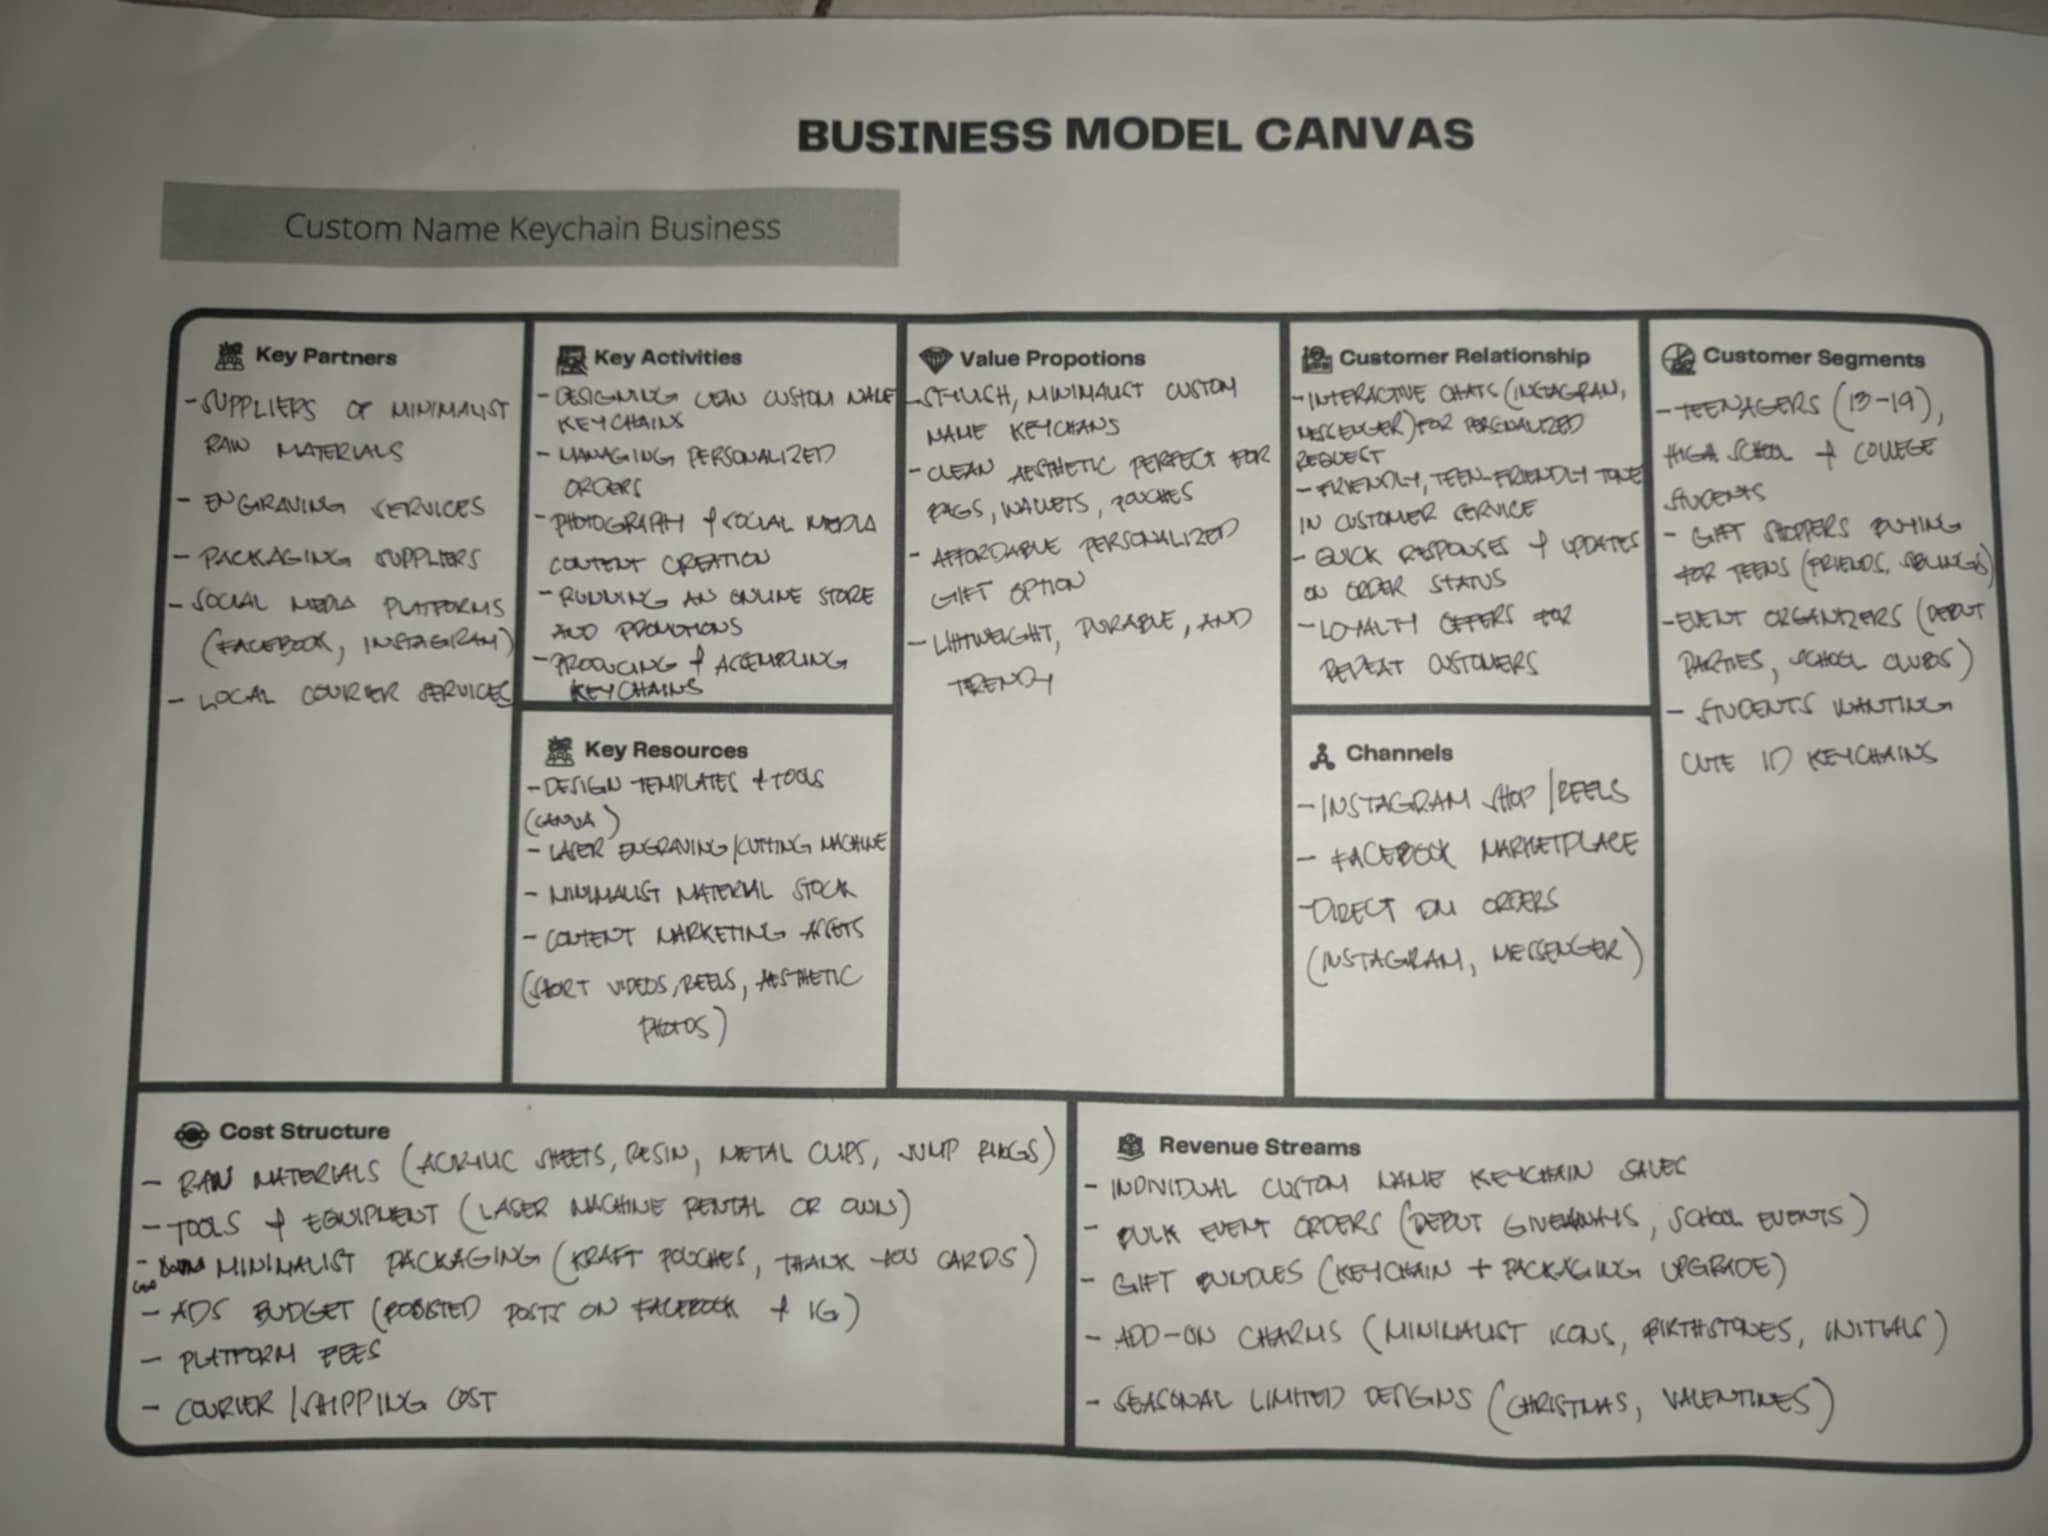 BUSINESS MODEL CANVAS
Custom Name Keychain Business
Key Partners
- SUPPLIERS OF MINIMALIST
RAW MATERIALS
- ENGRAVING SERVICES
- PACKAGING SUPPLIERS
- SOCIAL MEDIA PLATFORMS
(FACEBOOK, INSTAGRAM)
- LOCAL COURIER SERVICES
Key Activities
- DESIGNING CLEAN CUSTOM NAME
KEYCHAINS
- MANAGING PERSONALIZED
ORDERS
- PHOTOGRAPHY & SOCIAL MEDIA
CONTENT CREATION
- RUNNING AN ONLINE STORE
AND PROMOTIONS
- PRODUCING & ASSEMBLING
KEYCHAINS
Key Resources
- DESIGN TEMPLATES & TOOLS
(CANVA)
- LASER ENGRAVING/CUTTING MACHINE
- MINIMALIST MATERIAL STOCK
- CONTENT MARKETING ASSETS
(SHORT VIDEOS, REELS, AESTHETIC
PHOTOS)
Value Propotions
- STYLISH, MINIMALIST CUSTOM
NAME KEYCHANS
- CLEAN AESTHETIC PERFECT FOR
BAGS, WALLETS, POUCHES
- AFFORDABLE PERSONALIZED
GIFT OPTION
- LIHTWEIGHT, DURABLE, AND
TRENDY
Customer Relationship
- INTERACTIVE CHATS (INSTAGRAM,
MESSENGER) FOR PERSONALIZED
REQUEST
- FRIENDLY, TEEN-FRIENDLY TONE
IN CUSTOMER SERVICE
- QUICK RESPONSES & UPDATES
ON ORDER STATUS
- LOYALTY OFFERS FOR
REPEAT CUSTOMERS
Channels
- INSTAGRAM SHOP / REELS
- FACEBOOK MARKETPLACE
- DIRECT DM ORDERS
(INSTAGRAM, MESSENGER)
Customer Segments
- TEENAGERS (13-19),
HIGH SCHOOL & COLLEGE
STUDENTS
- GIFT SHOPPERS BUYING
FOR TEENS (FRIENDS, SIBLINGS)
- EVENT ORGANIZERS (DEBUT
PARTIES, SCHOOL CLUBS)
- STUDENTS WANTING
CUTE ID KEYCHAINS
Cost Structure
- RAW MATERIALS (ACRYLIC SHEETS, RESIN, METAL CLIPS, JUMP RINGS)
- TOOLS & EQUIPMENT (LASER MACHINE RENTAL OR OWN)
- MINIMALIST PACKAGING (KRAFT POUCHES, THANK YOU CARDS)
- ADS BUDGET (BOOSTED POSTS ON FACEBOOK & IG)
- PLATFORM FEES
- COURIER / SHIPPING COST
Revenue Streams
- INDIVIDUAL CUSTOM NAME KEYCHAIN SALES
- BULK EVENT ORDERS (DEBUT GIVEAWAYS, SCHOOL EVENTS)
- GIFT BUNDLES (KEYCHAIN + PACKAGING UPGRADE)
- ADD-ON CHARMS (MINIMALIST ICONS, BIRTHSTONES, INITIALS)
- SEASONAL LIMITED DESIGNS (CHRISTMAS, VALENTINES)